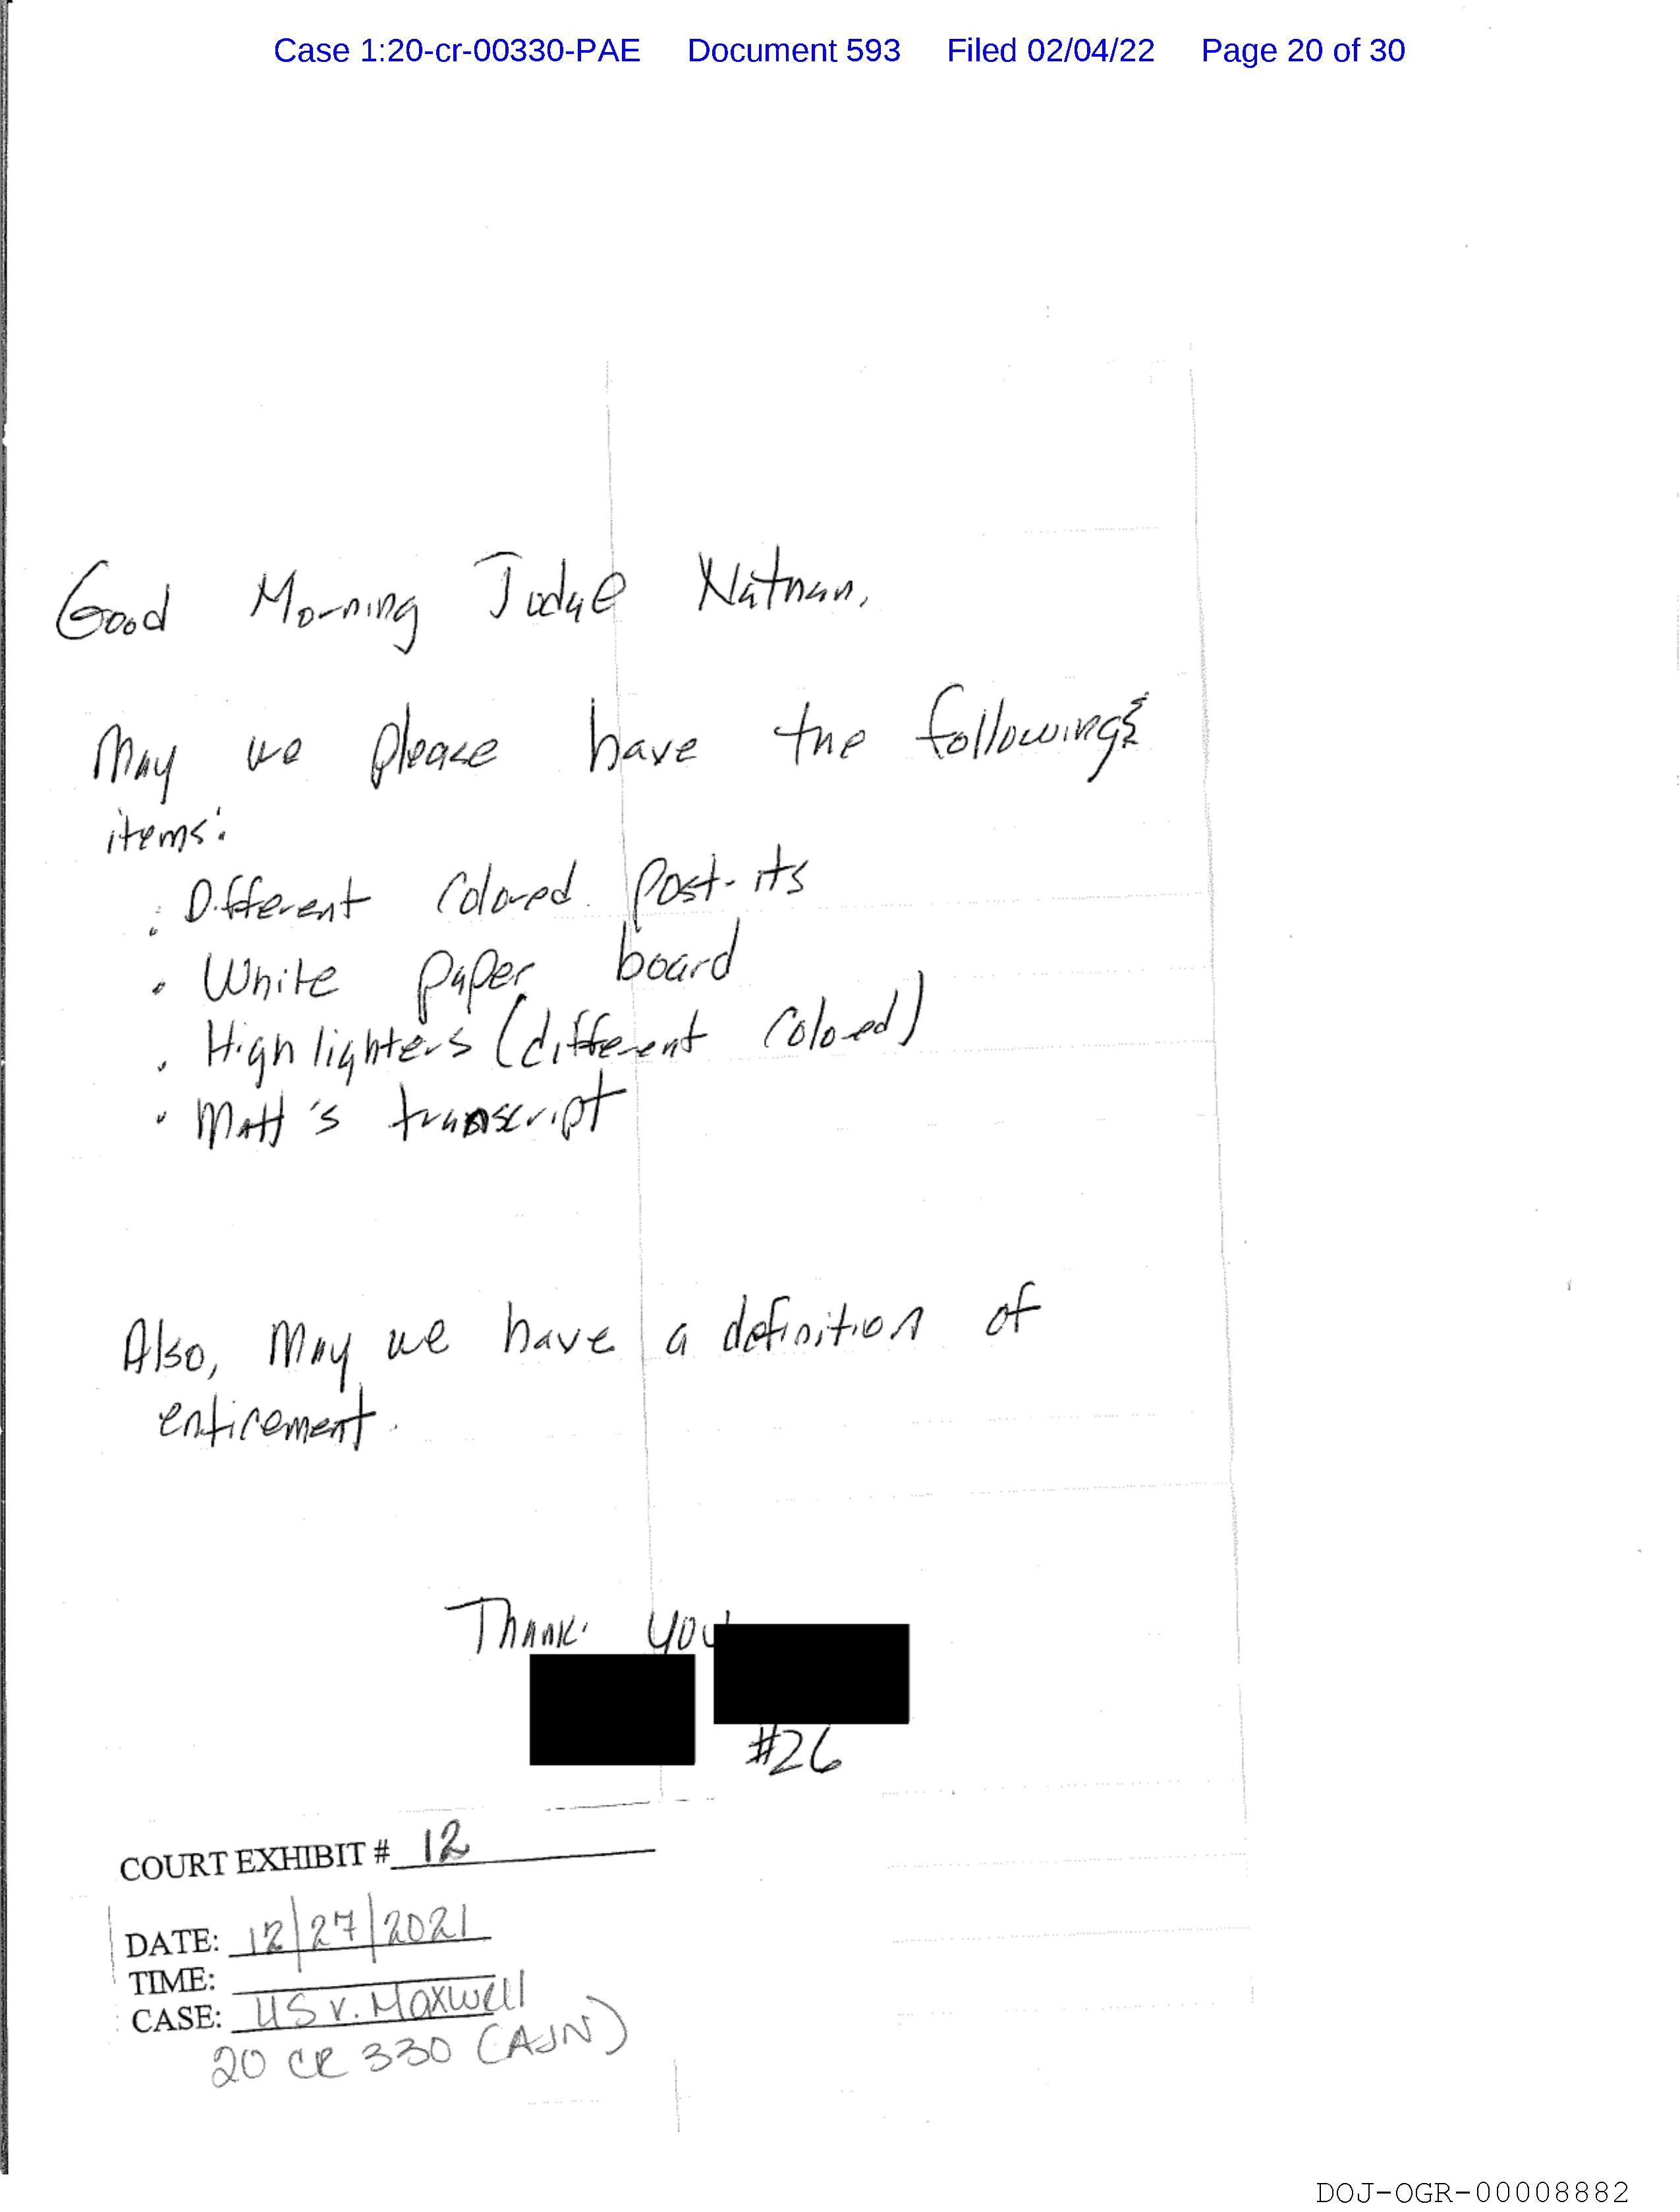 Case 1:20-cr-00330-PAE Document 593 Filed 02/04/22 Page 20 of 30
Good Morning Judge Nathan,
May we please have the following
items:
• Different Colored Post-its
• White paper board
• Highlighters (different colored)
• Matt's transcript
Also, May we have a definition of
enticement.
Thank you
#26
COURT EXHIBIT # 12
DATE: 12/27/2021
TIME:
CASE: US v. Maxwell
20 CR 330 (AJN)
DOJ-OGR-00008882